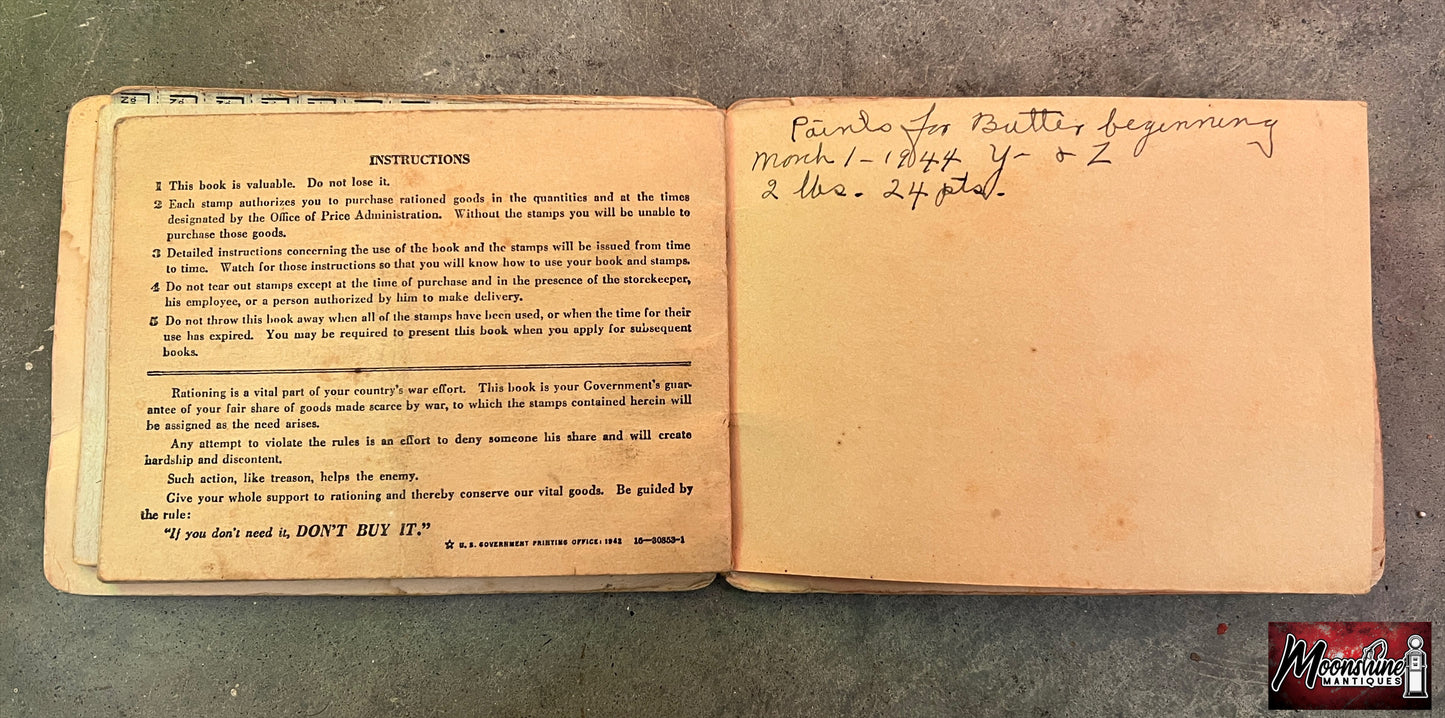 INSTRUCTIONS
1 This book is valuable. Do not lose it.
2 Each stamp authorizes you to purchase rationed goods in the quantities and at the times
designated by the Office of Price Administration. Without the stamps you will be unable to
purchase those goods.
3 Detailed instructions concerning the use of the book and the stamps will be issued from time
to time. Watch for those instructions so that you will know how to use your book and stamps.
4 Do not tear out stamps except at the time of purchase and in the presence of the storekeeper,
his employee, or a person authorized by him to make delivery.
5 Do not throw this book away when all of the stamps have been used, or when the time for their
use has expired. You may be required to present this book when you apply for subsequent
books.
Rationing is a vital part of your country's war effort. This book is your Government's guar-
antee of your fair share of goods made scarce by war, to which the stamps contained herein will
be assigned as the need arises.
Any attempt to violate the rules is an effort to deny someone his share and will create
hardship and discontent.
Such action, like treason, helps the enemy.
Give your whole support to rationing and thereby conserve our vital goods. Be guided by
the rule:
"If you don't need it, DON'T BUY IT."
☆ U. S. GOVERNMENT PRINTING OFFICE: 1942 16—30853-1
Points for Butter beginning
March 1 - 1944 Y - & Z
2 lbs. 24 pts.
Moonshine
MANTIQUES